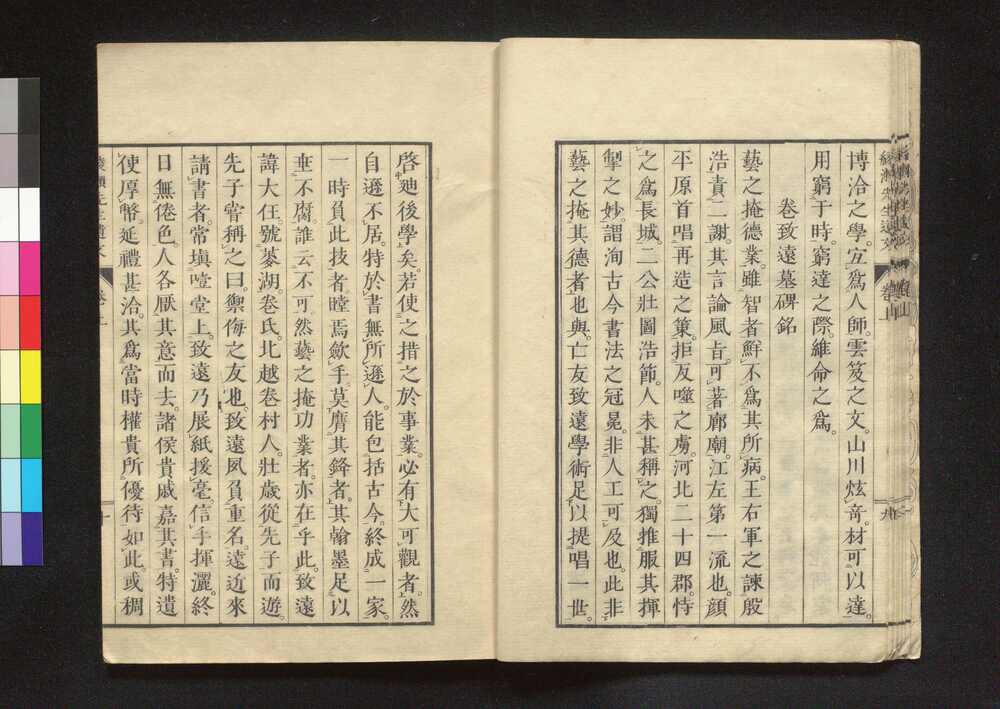 博洽之學。宜爲人師。雲笈之文。山川炫奇。材可以達。
用窮于時。窮達之際維命之爲。
卷致遠墓碑銘
藝之掩德業。雖智者鮮不爲其所病。王右軍之諫殷
浩責二謝。其言論風旨。可著廊廟。江左第一流也。顔
平原首唱再造之策。拒反噬之虜。河北二十四郡。恃
之爲長城。二公壯圖浩節。人未甚稱之。獨推服其揮
掣之妙。謂洵古今書法之冠冕。非人工可及也。此非
藝之掩其德者也與。亡友致遠學術足以提唱一世。
啓廸後學矣。若使之措之於事業。必有大可觀者。然
自遜不居。特於書無所遜人。能包括古今。終成一家。
一時負此技者瞠焉歛手。莫膺其鋒者。其翰墨足以
垂不腐。誰云不可。然藝之掩功業者。亦在乎此。致遠
諱大任。號菱湖。卷氏。北越卷村人。壯歳從先子而遊。
先子甞稱之曰。禦侮之友也。致遠夙負重名。遠近來
請書者。常塡噎堂上。致遠乃展紙援毫。信手揮灑。終
日無倦色。人各厭其意而去。諸侯貴戚嘉其書。特遺
使厚幣。延禮甚洽。其爲當時權貴所優待如此。或稠